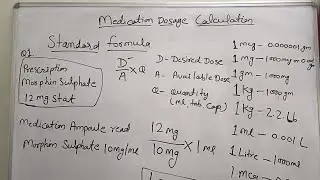 Medication Dosage Calculation
Q1.
Standard formula
Prescription
Morphin Sulphate
12 mg Stat
D/A × Q
D - Desired Dose
A - Available Dose
Q - Quantity
(ml, tab, Cap)
Medication Ampoule read
Morphin Sulphate 10mg/1ml
12 mg / 10 mg × 1 ml
1 mcg - 0.000001 gm
1 mg - 1000 mcg
1 gm - 1000 mg
1 kg - 1000 gm
1 kg - 2.2 Lb
1 mL - 0.001 L
1 Litre - 1000 ml